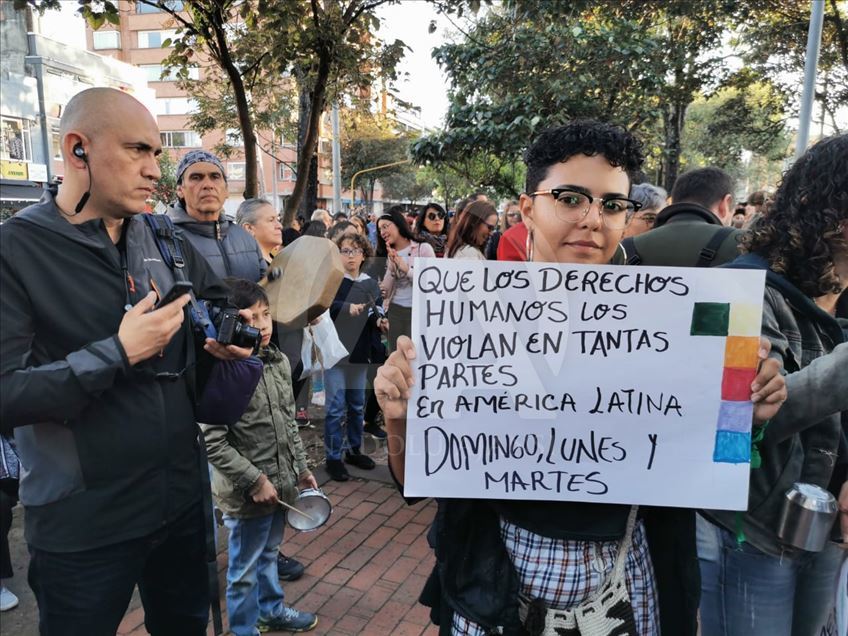 QUE LOS DERECHOS
HUMANOS LOS
VIOLAN EN TANTAS
PARTES
En AMÉRICA LATINA
DOMINGO, LUNES Y
MARTES